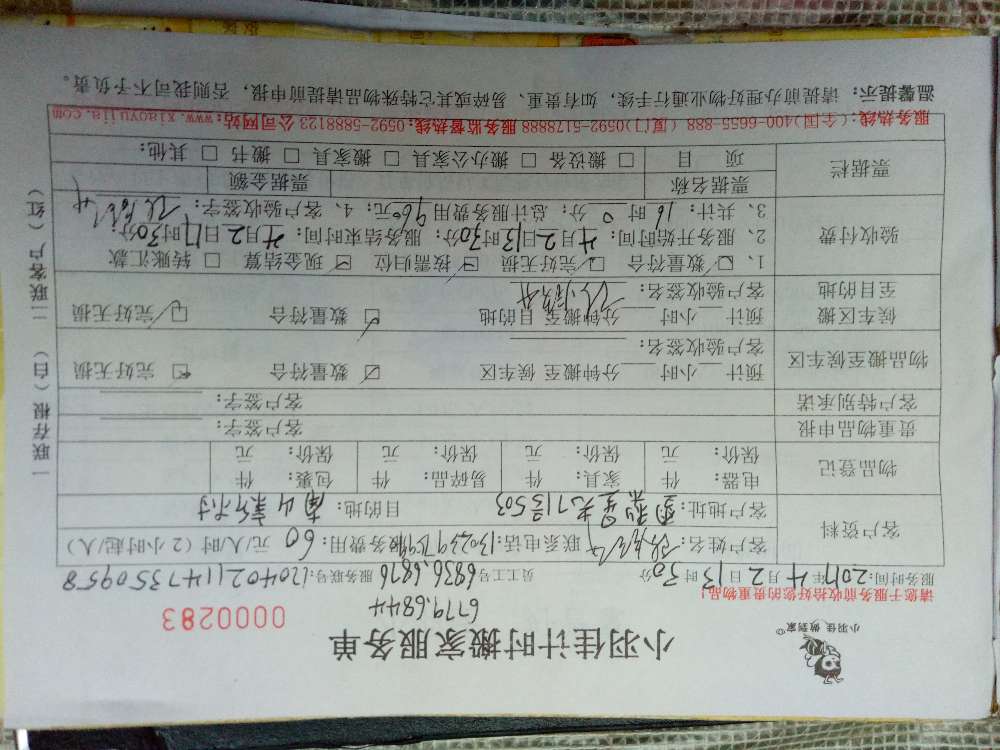 小羽佳 做到家
小羽佳计时搬家服务单
0000283
6779.6844
请您于服务前收拾好您的贵重物品!
服务时间: 2017年 4月 2日 13时 30分
员工工号: 6836.6876
服务联号: 120402114735 0958
客户资料
客户姓名:
联系电话:
服务费用: 60 元/人/时 (2小时起/人)
客户地址:
目的地: 南山新村
物品登记
电器: 件 家具: 件 易碎品: 件 包裹: 件
保价: 元 保价: 元 保价: 元 保价: 元
贵重物品申报
客户签字:
客户特别承诺
客户签字:
物品搬至候车区
预计 小时 分钟搬至候车区 ☑ 数量符合 ☑ 完好无损
客户验收签名:
候车区搬至目的地
预计 小时 分钟搬至目的地 ☑ 数量符合 ☑ 完好无损
客户验收签名:
验收付费
1、☑ 数量符合 ☑ 完好无损 ☑ 按需归位 ☑ 现金结算 □ 转账汇款
2、服务开始时间: 4月2日13时30分; 服务结束时间: 4月2日17时30分
3、共计: 16时0分; 总计服务费用960元; 4、客户验收签字:
票据栏
票据名称
票据金额
项 目 □ 搬设备 □ 搬办公家具 □ 搬家具 □ 搬书 □ 其他:
服务热线:(全国)400-6655-888 (厦门)0592-5178888 服务监督热线:0592-5888123 公司网站:www.xiaoyujia.com
温馨提示: 请提前办理好物业通行手续, 如有贵重、易碎或其它特殊物品请提前申报, 否则我司不予负责。
一联存根(白) 二联客户(红)